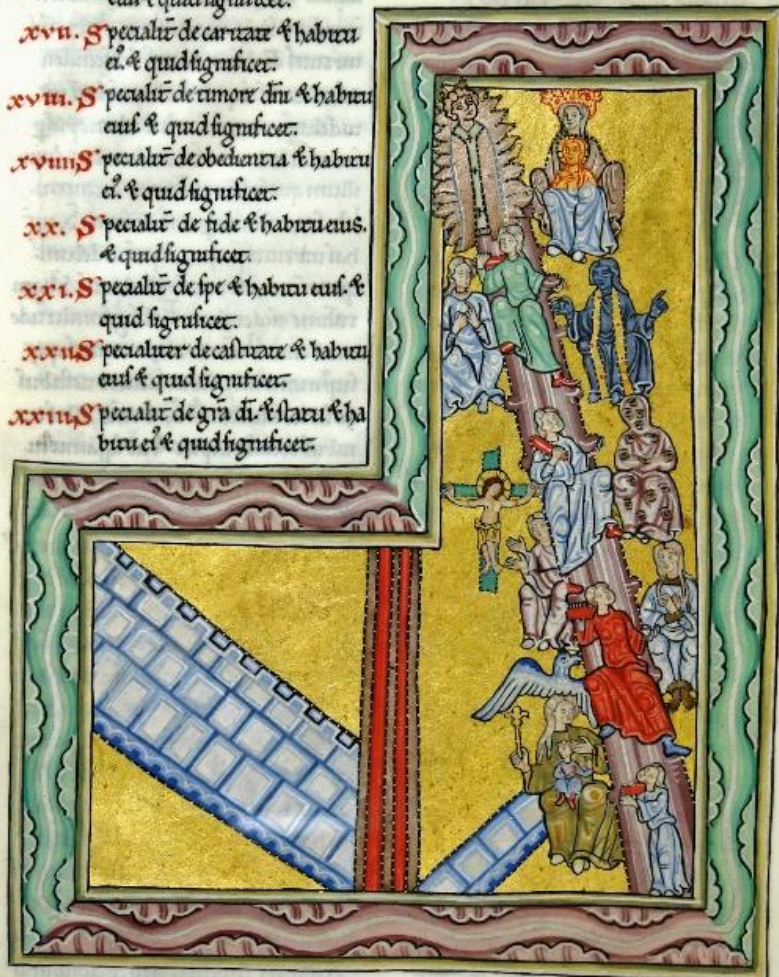 eius & quid significet.
xvii. Specialit̄ de caritate & habitu
ei⁹. & quid significet.
xviii. Specialit̄ de timore dñi & habitu
eius & quid significet.
xviiii Specialit̄ de obedientia & habitu
ei⁹. & quid significet.
xx. Specialit̄ de fide & habitu eius.
& quid significet.
xxi. Specialit̄ de spe & habitu eius. &
quid significet.
xxii Specialiter de castitate & habitu
eius & quid significet.
xxiii Specialit̄ de gr̄a dī. & statu & ha
bitu ei⁹ & quid significet.